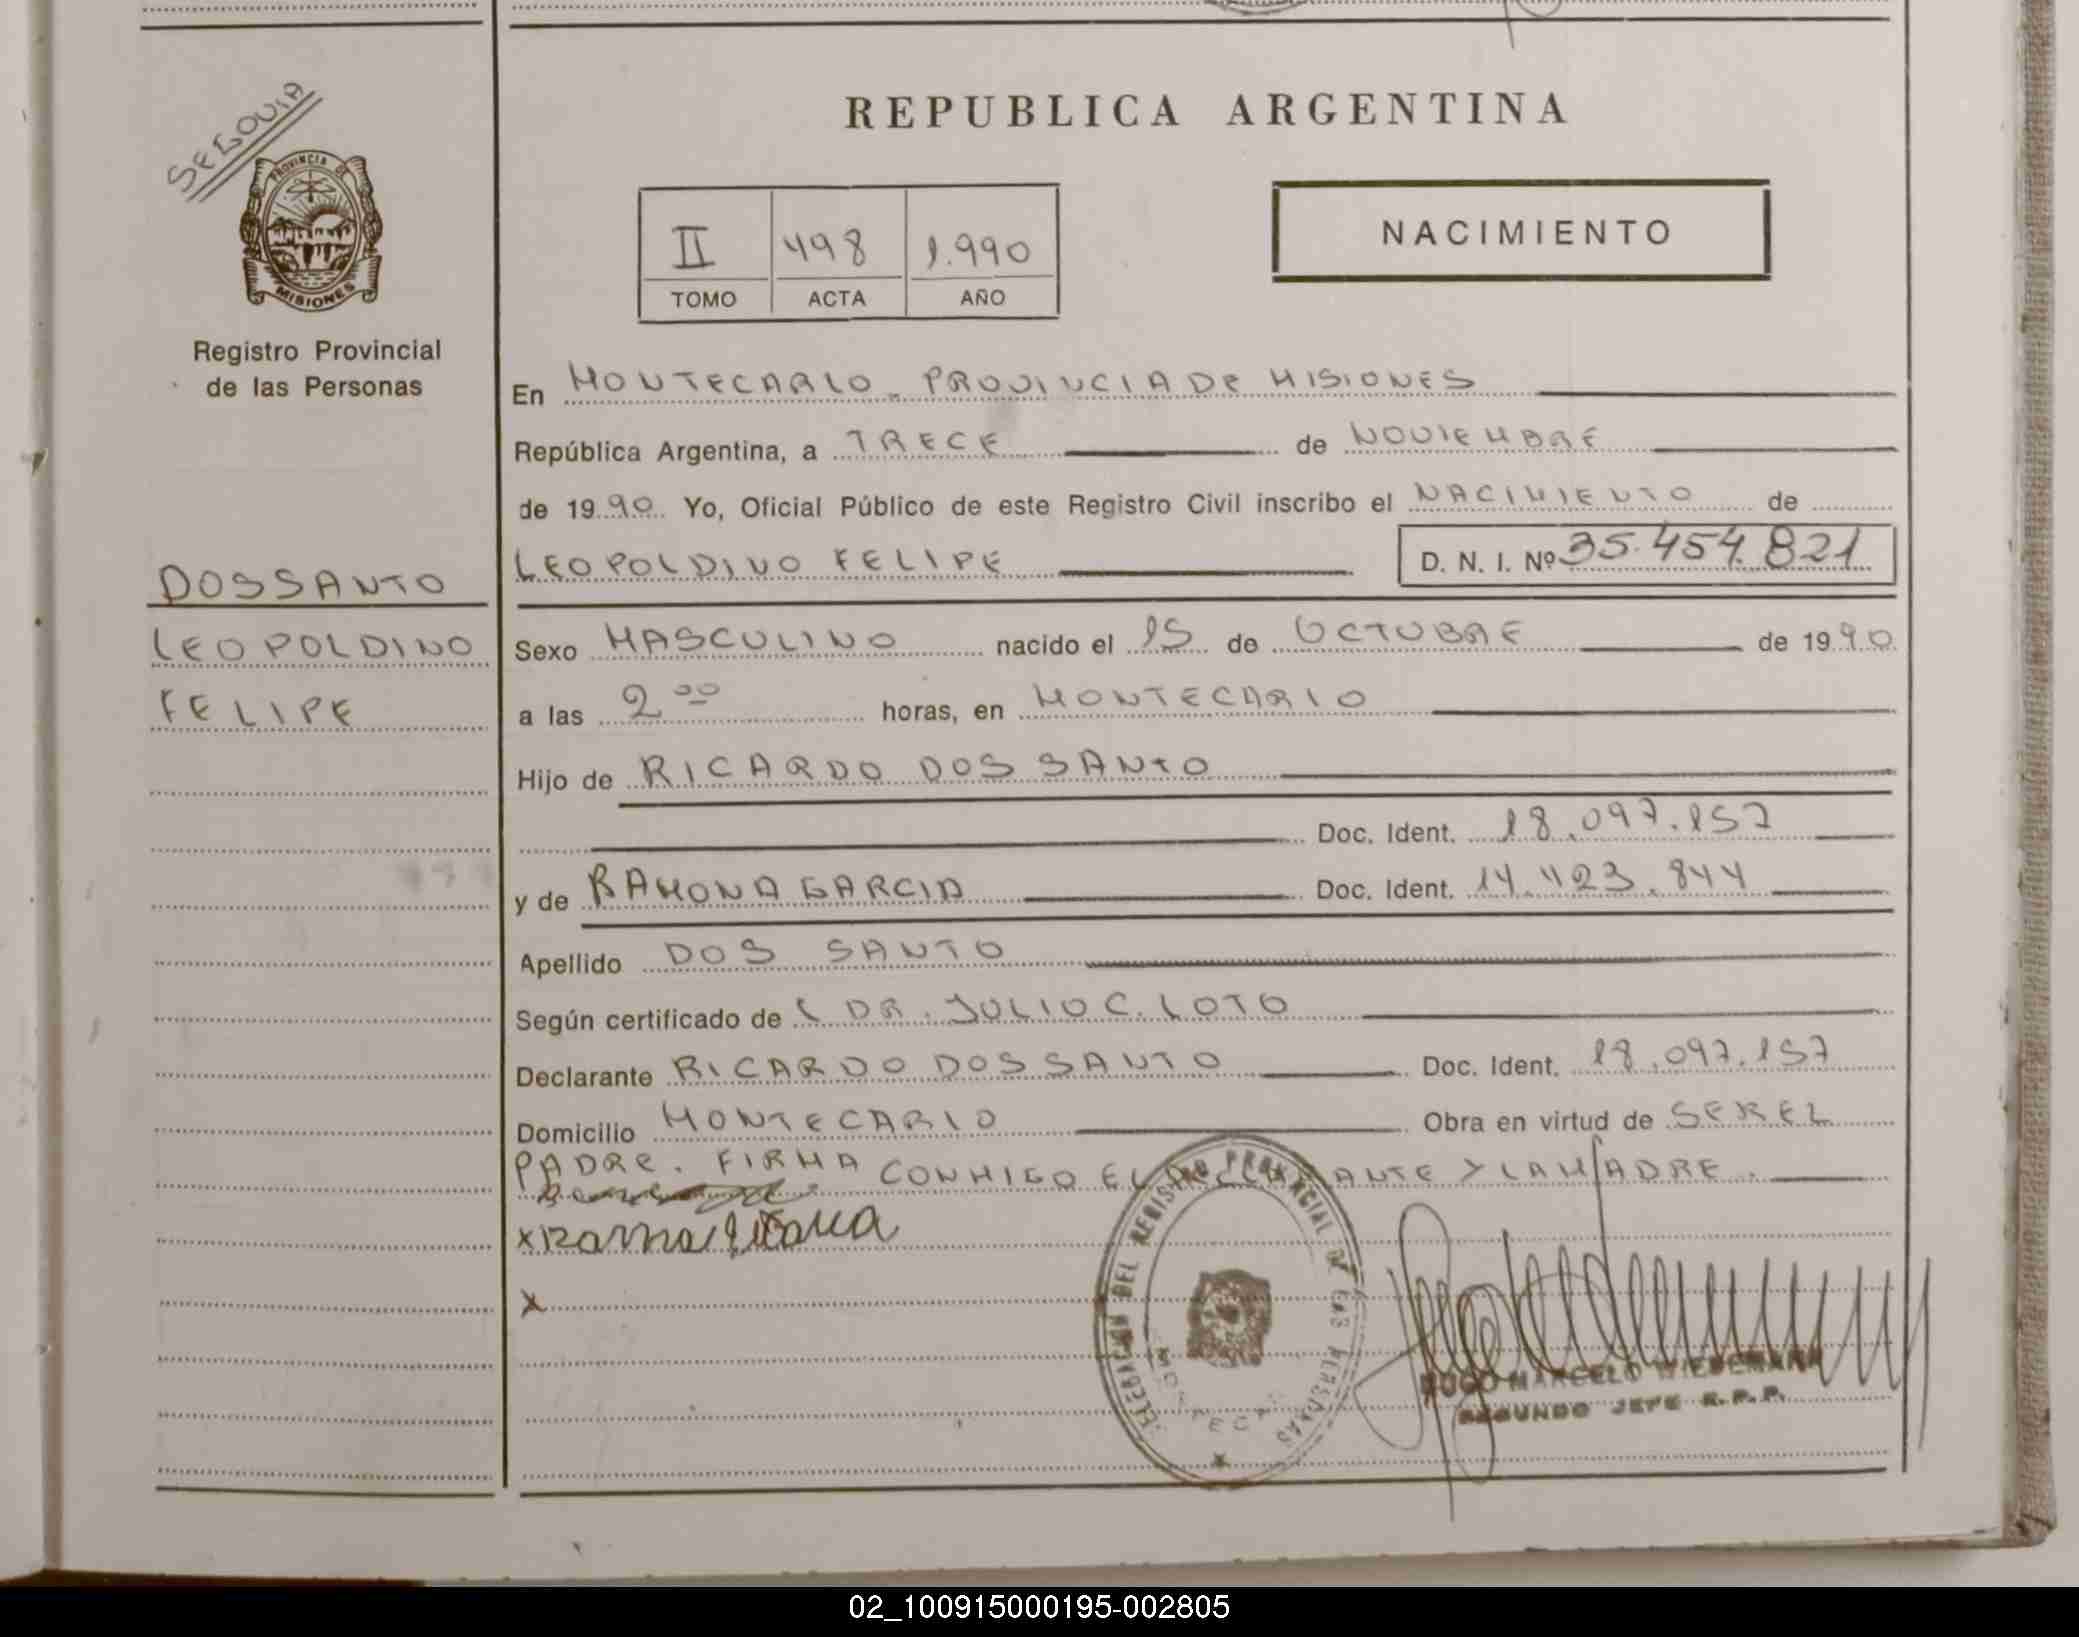 SEGOVIA
PROVINCIA DE
MISIONES
Registro Provincial
de las Personas
DOSSANTO
LEOPOLDINO
FELIPE
REPUBLICA ARGENTINA
II 498 1.990
TOMO ACTA AÑO
NACIMIENTO
En MONTECARLO - PROVINCIA DE MISIONES
República Argentina, a TRECE de NOVIEMBRE
de 1990 Yo, Oficial Público de este Registro Civil inscribo el NACIMIENTO de
LEOPOLDINO FELIPE D. N. I. Nº 35.454.821
Sexo MASCULINO nacido el 15 de OCTUBRE de 1990
a las 2 00 horas, en MONTECARLO
Hijo de RICARDO DOS SANTO
Doc. Ident. 18.097.157
y de RAMONA GARCIA Doc. Ident. 14.423.844
Apellido DOS SANTO
Según certificado de L DR. JULIO C. LOTO
Declarante RICARDO DOS SANTO Doc. Ident. 18.097.157
Domicilio MONTECARLO Obra en virtud de SER EL
PADRE. FIRMA CONMIGO EL DECLARANTE Y LA MADRE.
x
x
DELEGACION DEL REGISTRO PROVINCIAL DE LAS PERSONAS
HUGO MARCELO WIEDEMANN
SEGUNDO JEFE R.P.P.
02_100915000195-002805